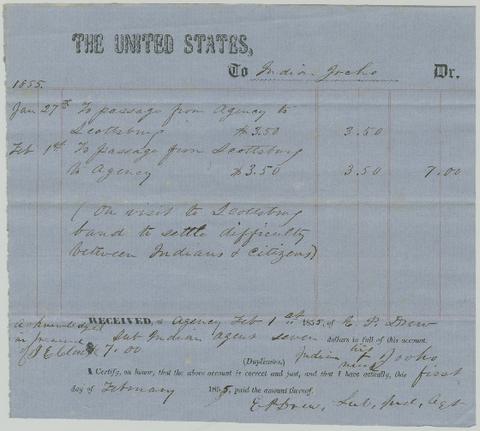 THE UNITED STATES,
To Indian Jocko Dr.
1855.
Jan 27th To passage from Agency to
Scottsburg $3.50 3.50
Feb 1st To passage from Scottsburg
to Agency $3.50 3.50 7.00
(On visit to Scottsburg
band to settle difficulty
between Indians & Citizens)
RECEIVED, at Agency Feb 1st 1855, of E. P. Drew
Sub Indian agent seven dollars in full of this account.
acknowledged
in presence
of
$ 7.00
(Duplicates.) Indian his X mark Jocko
I Certify, on honor, that the above account is correct and just, and that I have actually, this first
day of February 1855, paid the amount thereof.
E. P. Drew, Sub. Ind. Agt